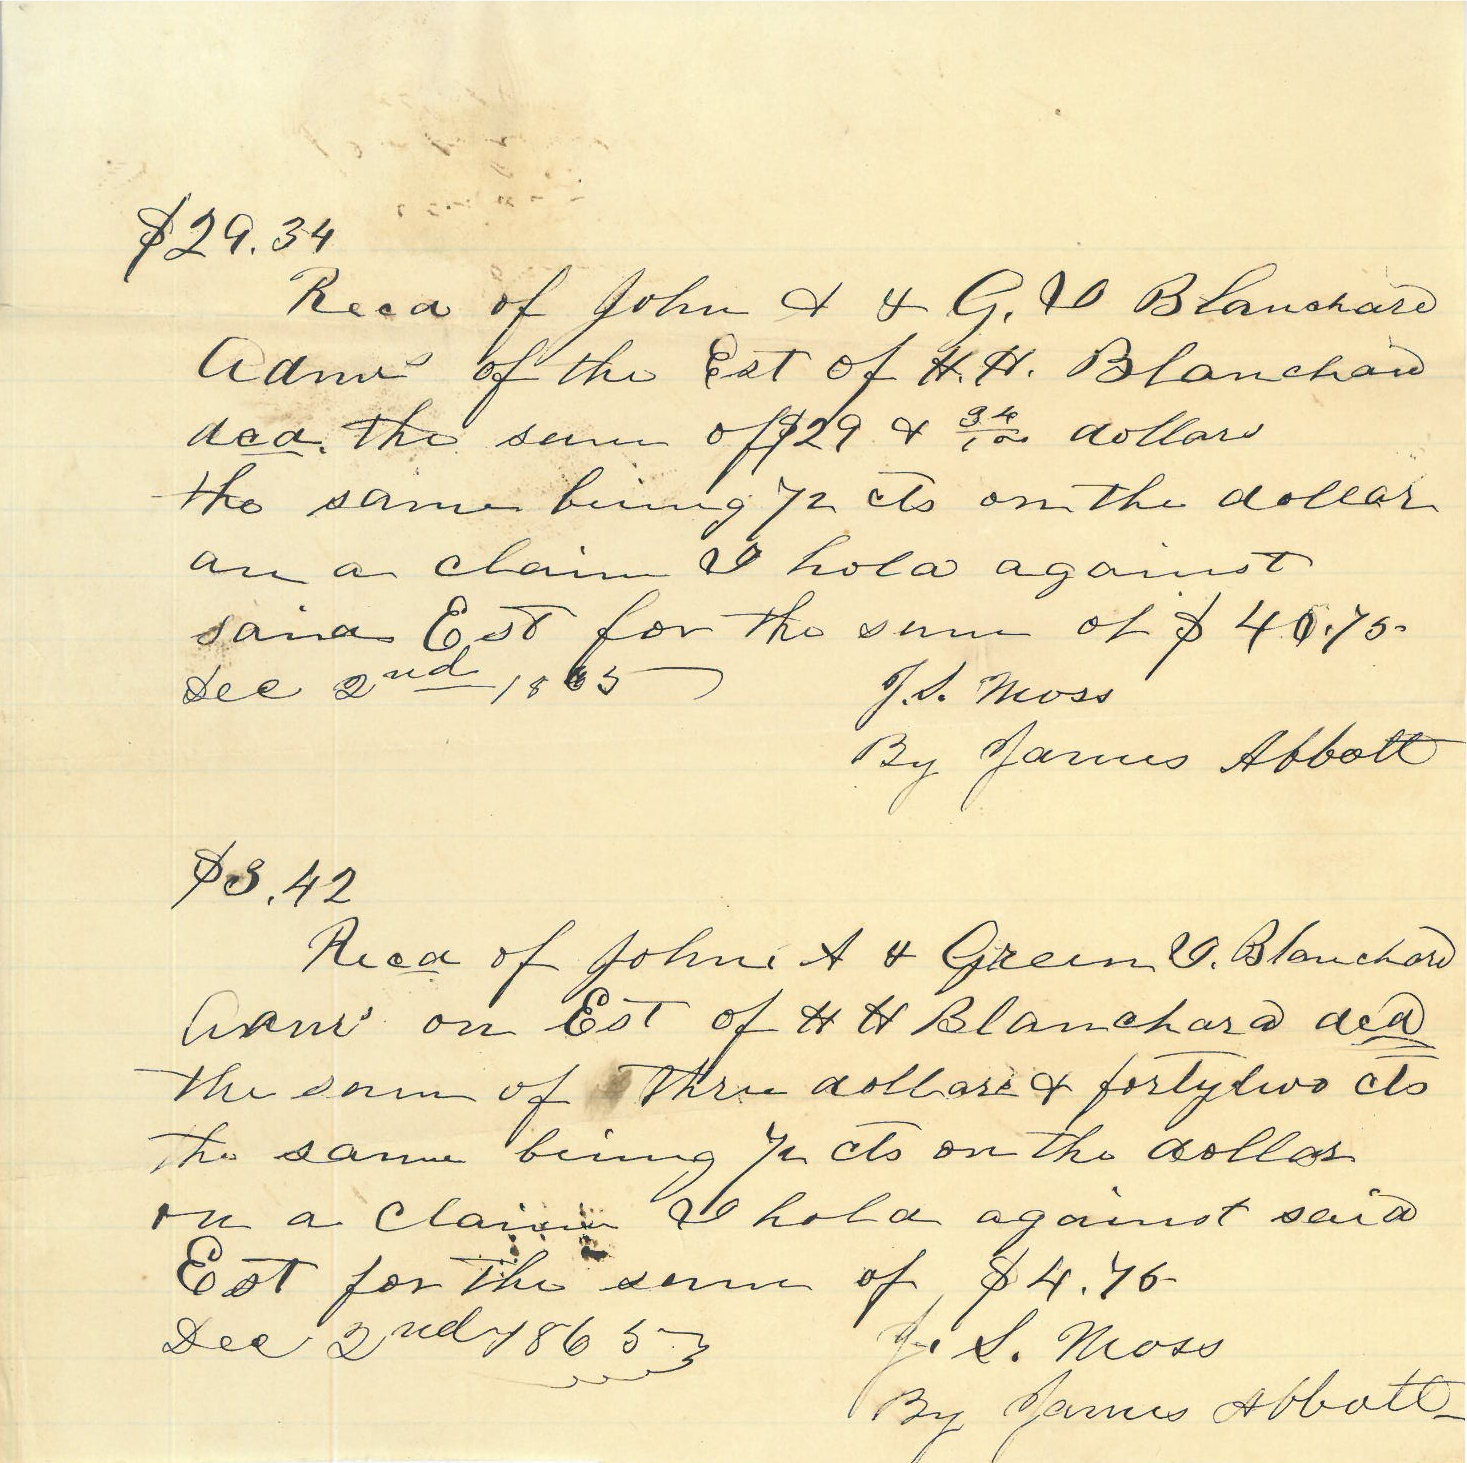 $29.34
Recd of John A & G. V Blanchard
Admrs of the Est of H. H. Blanchard
decd. the sum of $29 & 34/100 dollars
the same being 72 cts on the dollar
on a claim I hold against
said Est for the sum of $40.75
Dec 2nd 1865
J. S. Moss
By James Abbott
$3.42
Recd of John A & Green V. Blanchard
Admrs on Est of H H Blanchard decd
the sum of Three dollars & forty two cts
the same being 72 cts on the dollar
on a claim I hold against said
Est for the sum of $4.75
Dec 2nd 1865
J. S. Moss
By James Abbott